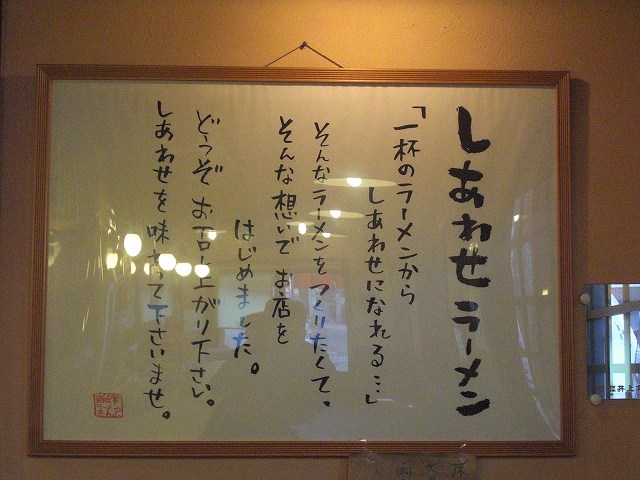 しあわせラーメン
「一杯のラーメンから
しあわせになれる…」
そんなラーメンをつくりたくて、
そんな想いで お店を
はじめました。
どうぞ お召し上がり下さい。
しあわせを味わって下さいませ。